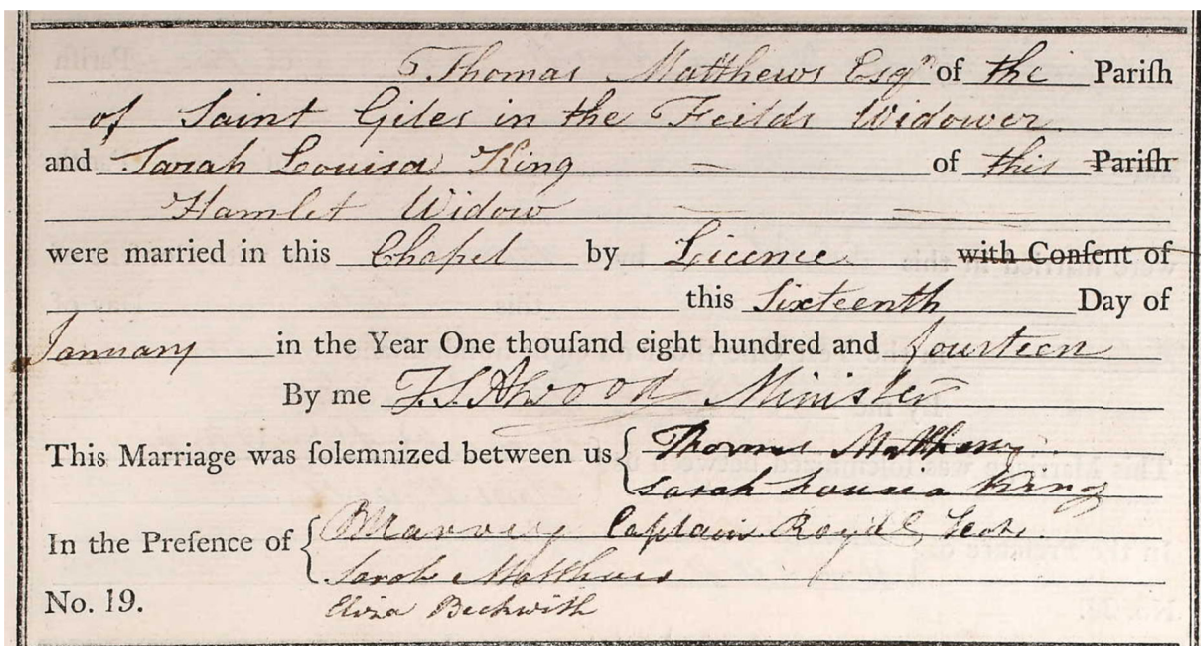 Thomas Matthews Esqr of the Pariſh
of Saint Giles in the Feilds Widower
and Sarah Louisa King = of this Pariſh
Hamlet Widow = =
were married in this Chapel by Licence with Conſent of
this Sixteenth Day of
January in the Year One thouſand eight hundred and fourteen
By me Minister
This Marriage was ſolemnized between us { Thomas Matthews
Sarah Louisa King
In the Preſence of { Captain Royal Scots
Sarah Matthews
No. 19. Eliza Beckwith